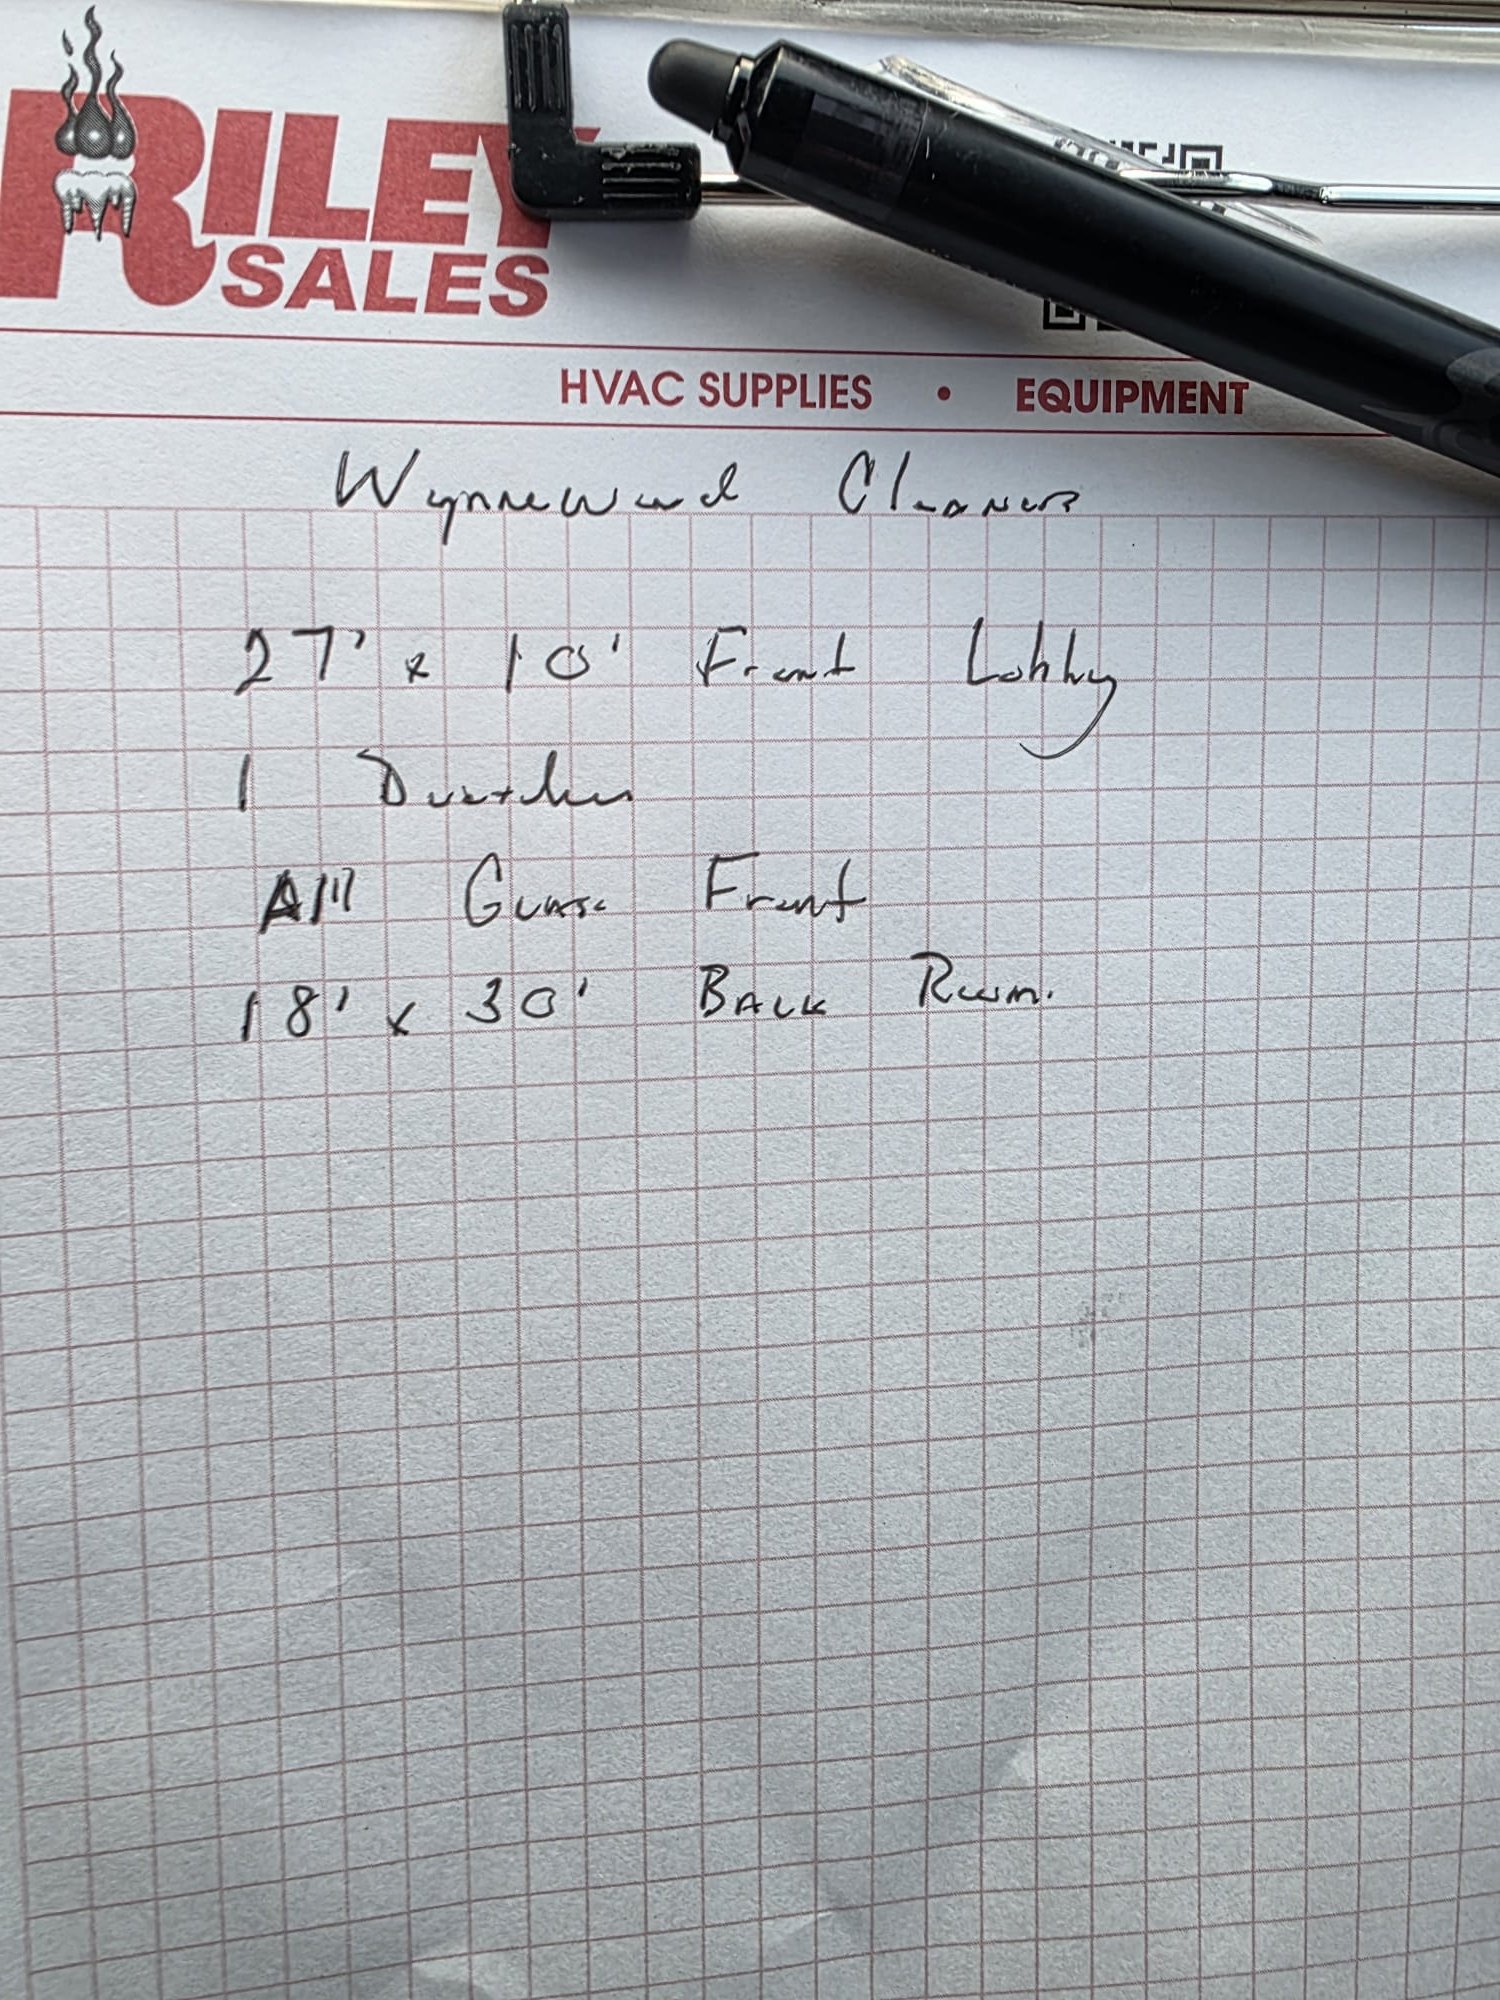 RILEY
SALES
HVAC SUPPLIES • EQUIPMENT
Wynnewood Cleaners
27' x 10' Front Lobby
1
All Front
18' x 30' Back Room.